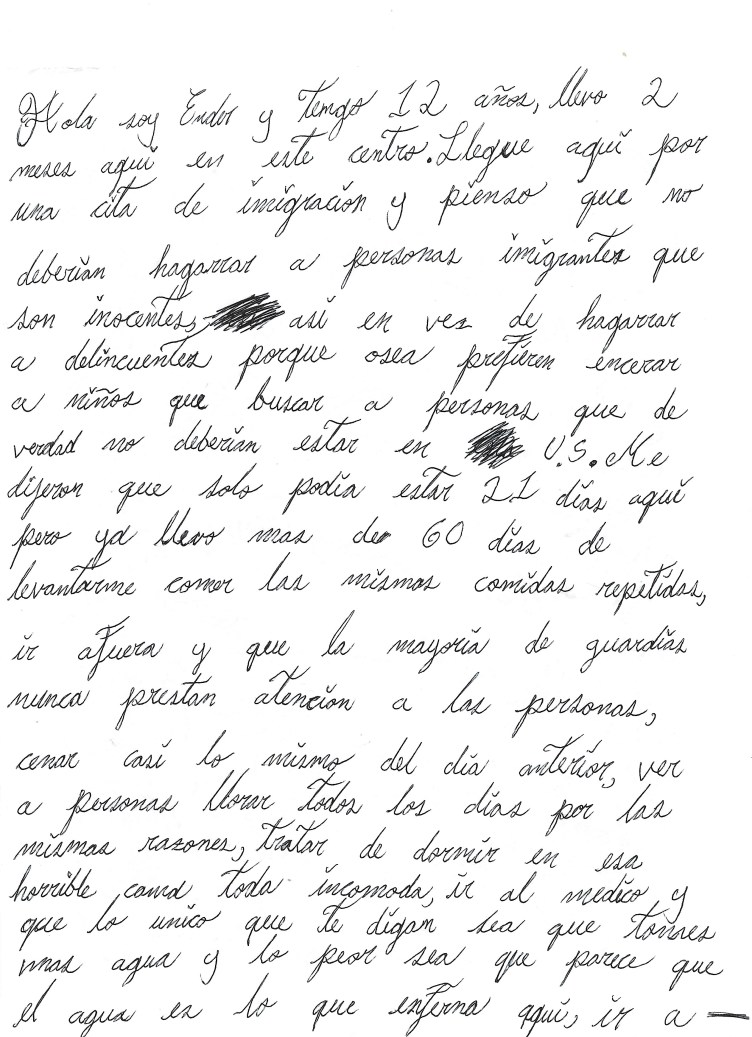 Hola soy Ender y tengo 12 años, llevo 2
meses aquí en este centro. Llegue aquí por
una cita de imigración y pienso que no
deberían hagarrar a personas imigrantes que
son inocentes, así en vez de hagarrar
a delincuentes porque osea prefieren encerar
a niños que buscar a personas que de
verdad no deberían estar en U.S. Me
dijeron que solo podía estar 21 días aquí
pero ya llevo mas de 60 días de
levantarme comer las mismas comidas repetidas,
ir afuera y que la mayoría de guardias
nunca prestan atención a las personas,
cenar casi lo mismo del día anterior, ver
a personas llorar todos los días por las
mismas razones, tratar de dormir en esa
horrible cama toda incomoda, ir al medico y
que lo unico que te digam sea que tomes
mas agua y lo peor sea que parece que
el agua es lo que enferma aquí, ir a —